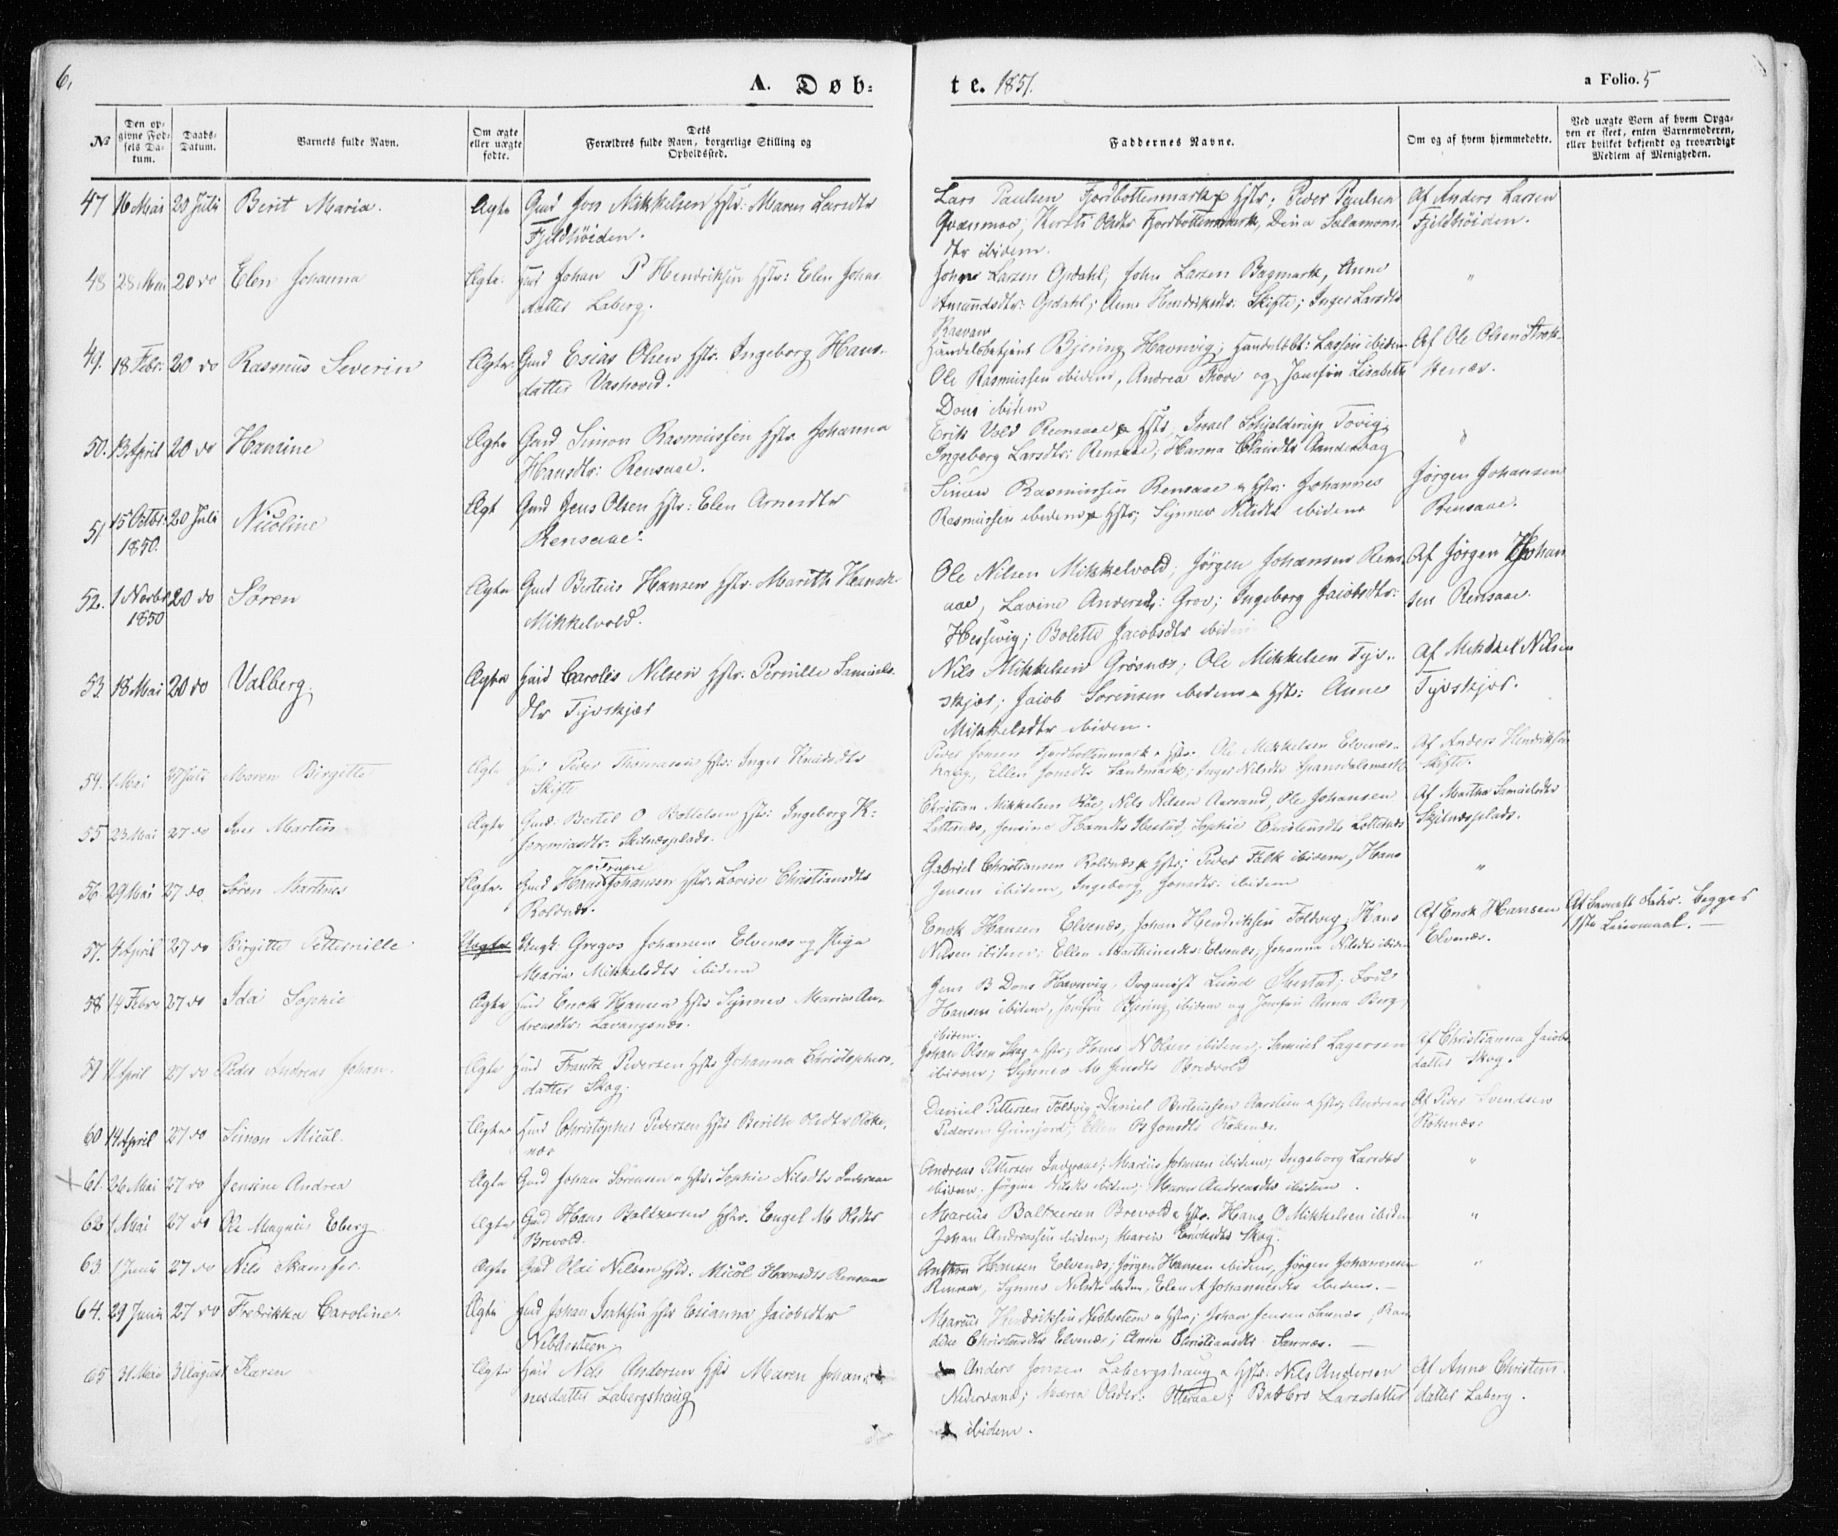 6.
A. Døb=
te. 1851.
a Folio. 5
No
Den op=
givne Fød=
sels Da=
tum.
Daabs=
Datum.
Barnets fulde Navn.
Om ægte
eller uægte
fødte.
Dets
Forældres fulde Navn, borgerlige Stilling og
Opholdssted.
Faddernes Navne.
Om og af hvem hjemmedøbte.
Ved uægte Børn af hvem Opga=
ven er skeet, enten Barnemoderen,
eller hvilket bekjendt og troværdigt
Medlem af Menigheden.
47 16 Mai 20 Juli Berit Maria. Ægte Gmd Jon Mikkelsen Hstr: Maren Larsdtr
Fjeldhøiden.
Lars Paulsen Fjordbottenmark & Hstr; Peder Paulsen
Kersti Olsdtr Fjordbottenmark, Dina Salamons
dtr ibidem.
Af Anders Larsen
Fjeldhøiden.
48 28 Mai 20 do Elen Johanna Ægte. Johan P Hendriksen Hstr: Elen Johns
datter Laberg.
Larsen Gjdahl; John Larsen Bagmark, Anne
Amundsdtr: Gjdahl; Anne Hendriksdtr. Skifte; Inger Larsdtr
"
49. 18 Febr. 20 do Rasmus Severin Ægte. Gmd Esias Olsen Hstr. Ingeborg Hans-
datter Vashoved.
Handelsbetjent Bjering Havnvig; ibidem
Ole Rasmussen ibidem, Andrea og Jomfru Lisabeth
Dons ibidem
Af Ole Olsen
50. 13 April 20 do Hansine Ægte Gmd Simon Rasmussen Hstr. Johanna
Hansdtr: Rensaae.
Erik Vold Rensaae & Hstr, Israel Schjelderup Tovig;
Ingeborg Larsdtr: Rensaae; Hanna
"
51 15 Octbr. 20 Juli Nicoline Ægt Gmd Jens Olsen Hstr: Elen Arnesdtr
1850. Rensaae.
Simon Rasmussen Rensaae & Hstr: Johannes
Rasmussen ibidem & Hstr; Synnev Nilsdtr ibidem
Jørgen Johansen
Rensaae.
52. 1 Novbr. 20 do Søren Ægte Gmd Berteus Hansen Hstr. Marith Hansdtr
1850 Mikkelvold.
Ole Nilsen Mikkelvold; Jørgen Johansen Rens
aae, Lavine Andersdtr: Grov; Ingeborg Jacobsdtr:
Hessevig; Bolette Jacobsdtr ibidem
Af Jørgen Johan
sen Rensaae.
53. 18 Mai 20 do Valberg. Ægte Carolius Nilsen Hstr. Pernille Samuels
dtr Tyvskjær
Nils Mikkelsen Grøsnæs; Ole Mikkelsen Tyv-
skjær; Jacob Sørensen ibidem & Hstr: Anne
Mikkelsdtr ibidem.
Af Mikkel Nilsen
Tyvskjær.
54. 1 Mai 27 Juli Maren Birgitte Ægte Peder Thomasen Hstr: Inger Knudsdtr
Skifte
Peder Jonsen Fjordbottenmark & Hstr. Ole Mikkelsen Elvenæs
haug, Ellen Jonsdtr Sandmark; Inger Nilsdtr Spansdalsmark
Af Anders Hendriksen
Skifte.
55 23 Mai 27 do Iver Martin Ægte Gmd. Bertel O Bottelsen Hstr: Ingeborg K.
Jeremiasdtr. Skilnæsplads.
Christian Mikkelsen Nils Nilsen Aarsand, Ole Johansen
Lottenæs, Jensine Ibestad, Sophie Christensdtr Lottenæs
Af Martha Samuelsdtr
Skjelnæsplads.
56. 29 Mai 27 do Søren Martines Ægte. Gmd Hans Johansen Hstr. Lovise Christiansdtr
Roldnæs.
Gabriel Christiansen Roldnæs & Hstr; Peder Falk ibidem, Hans
Jensen ibidem, Ingeborg Jonsdtr. ibidem
"
57. 4 April 27 do Birgitte Petternille Uægte Ungk. Gregos Johansen Elvenæs og Pige
Maria Mikkelsdtr ibidem
Enok Hansen Elvenæs, Johan Hendriksen Foldvig; Hans
Nilsen ibidem; Ellen Marthinesdtr: Elvenæs, Johanna Nilsdtr ibidem
Af Enok Hansen
Elvenæs.
Af Barnets Fader. Begges
1ste Leiermaal.
58 14 Febr. 27 do Ida Sophie Ægte Enok Hansen Hstr Synnev Maria An-
dreasdtr. Lavangsnæs.
Jens B Dons Havnvig. Organist Lund Ibestad;
Hansen ibidem, Jomfru Bjering ibidem og Jomfru Anna Berg,
ibidem.
59 11 April 27 do Peder Andreas Johan. Ægte Frantz Pedersen Hstr Johanna Christophers-
datter Skog.
Johan Olsen Skog & Hstr; Hans N Olsen ibidem; Samuel Lagersen
ibidem; Synnev M Jensdtr Bredvold
Af Christianna Jacobs
datter Skog.
60 14 April 27 do Simon Mical. Ægte Christopher Pedersen Hstr Berithe Olsdtr Røke-
næs
Daniel Pettersen Foldvig, Daniel Berteussen & Hstr; Andreas
Pedersen Grønfjord; Ellen B Jonsdtr Røkenæs.
Af Peder Svendsen
Røkenæs.
61. 26 Mai 27 do Jensine Andrea Ægte Gmd Johan Sørensen & Hstr. Sophie Nilsdtr Inderaae
Andreas Pettersen Inderaae; Marcus Johnsen ibidem; Ingeborg Larsdtr
ibidem. Jørgine Nilsdtr ibidem; Maren Andreasdtr ibidem.
"
62 1 Mai 27 do Ole Magnus Eberg Ægte Gmd Hans Baltzersen Hstr. Engel M Olsdtr
Brevold.
Marcus Baltzersen Brevold & Hstr. Hans O Mikkelsen ibidem
Johan Andreassen ibidem; Maren Enoksdtr Skog.
"
63 1 Juni 27 do Nils Skamfer. Ægte Gmd Olai Nilsen Hstr. Micol Hansdtr Rensaae
Anthon Hansen Elvenæs; Jørgen Hansen ibidem, Jørgen Johannesen
Rensaae, Synnev Nilsdtr ibidem, Elen A Johannesdtr ibidem.
"
64. 29 Juni 27 do Fredrikka Caroline. Ægte Gmd Johan Isaksen Hstr Esianna Jacobsdtr
Nebbesteen
Marcus Hendriksen Nebbesteen & Hstr; Johan Jensen Sannæs,
dine Christensdtr Elvenæs; Anne Christiansdtr Sannæs.
65 31 Mai 3 August Karen Ægte Nils Andersen Hstr Maren Johan-
nesdatter Labergshaug
Anders Jonsen Labergshaug & Hstr: Nils Andersen
Nedervand; Maren Olsdtr: Otteraae; Larsdatter
ibidem.
Af Anne Christens
datter Laberg.